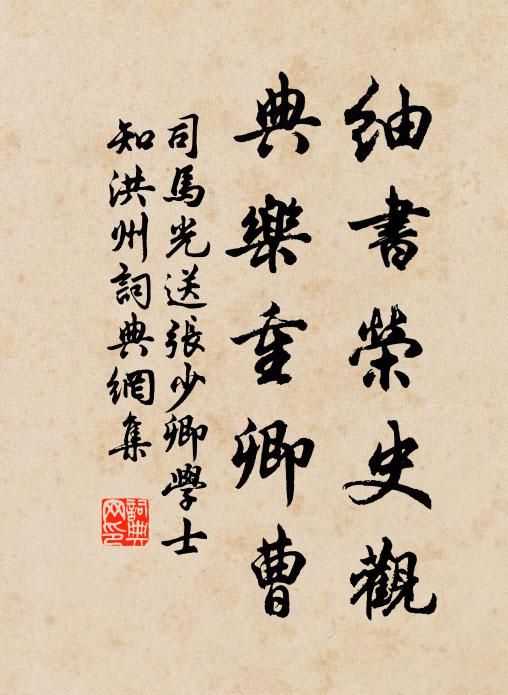 紬書榮史觀
典樂重卿曹
司馬光送張少卿學士
知洪州詞典網集
詞典網印